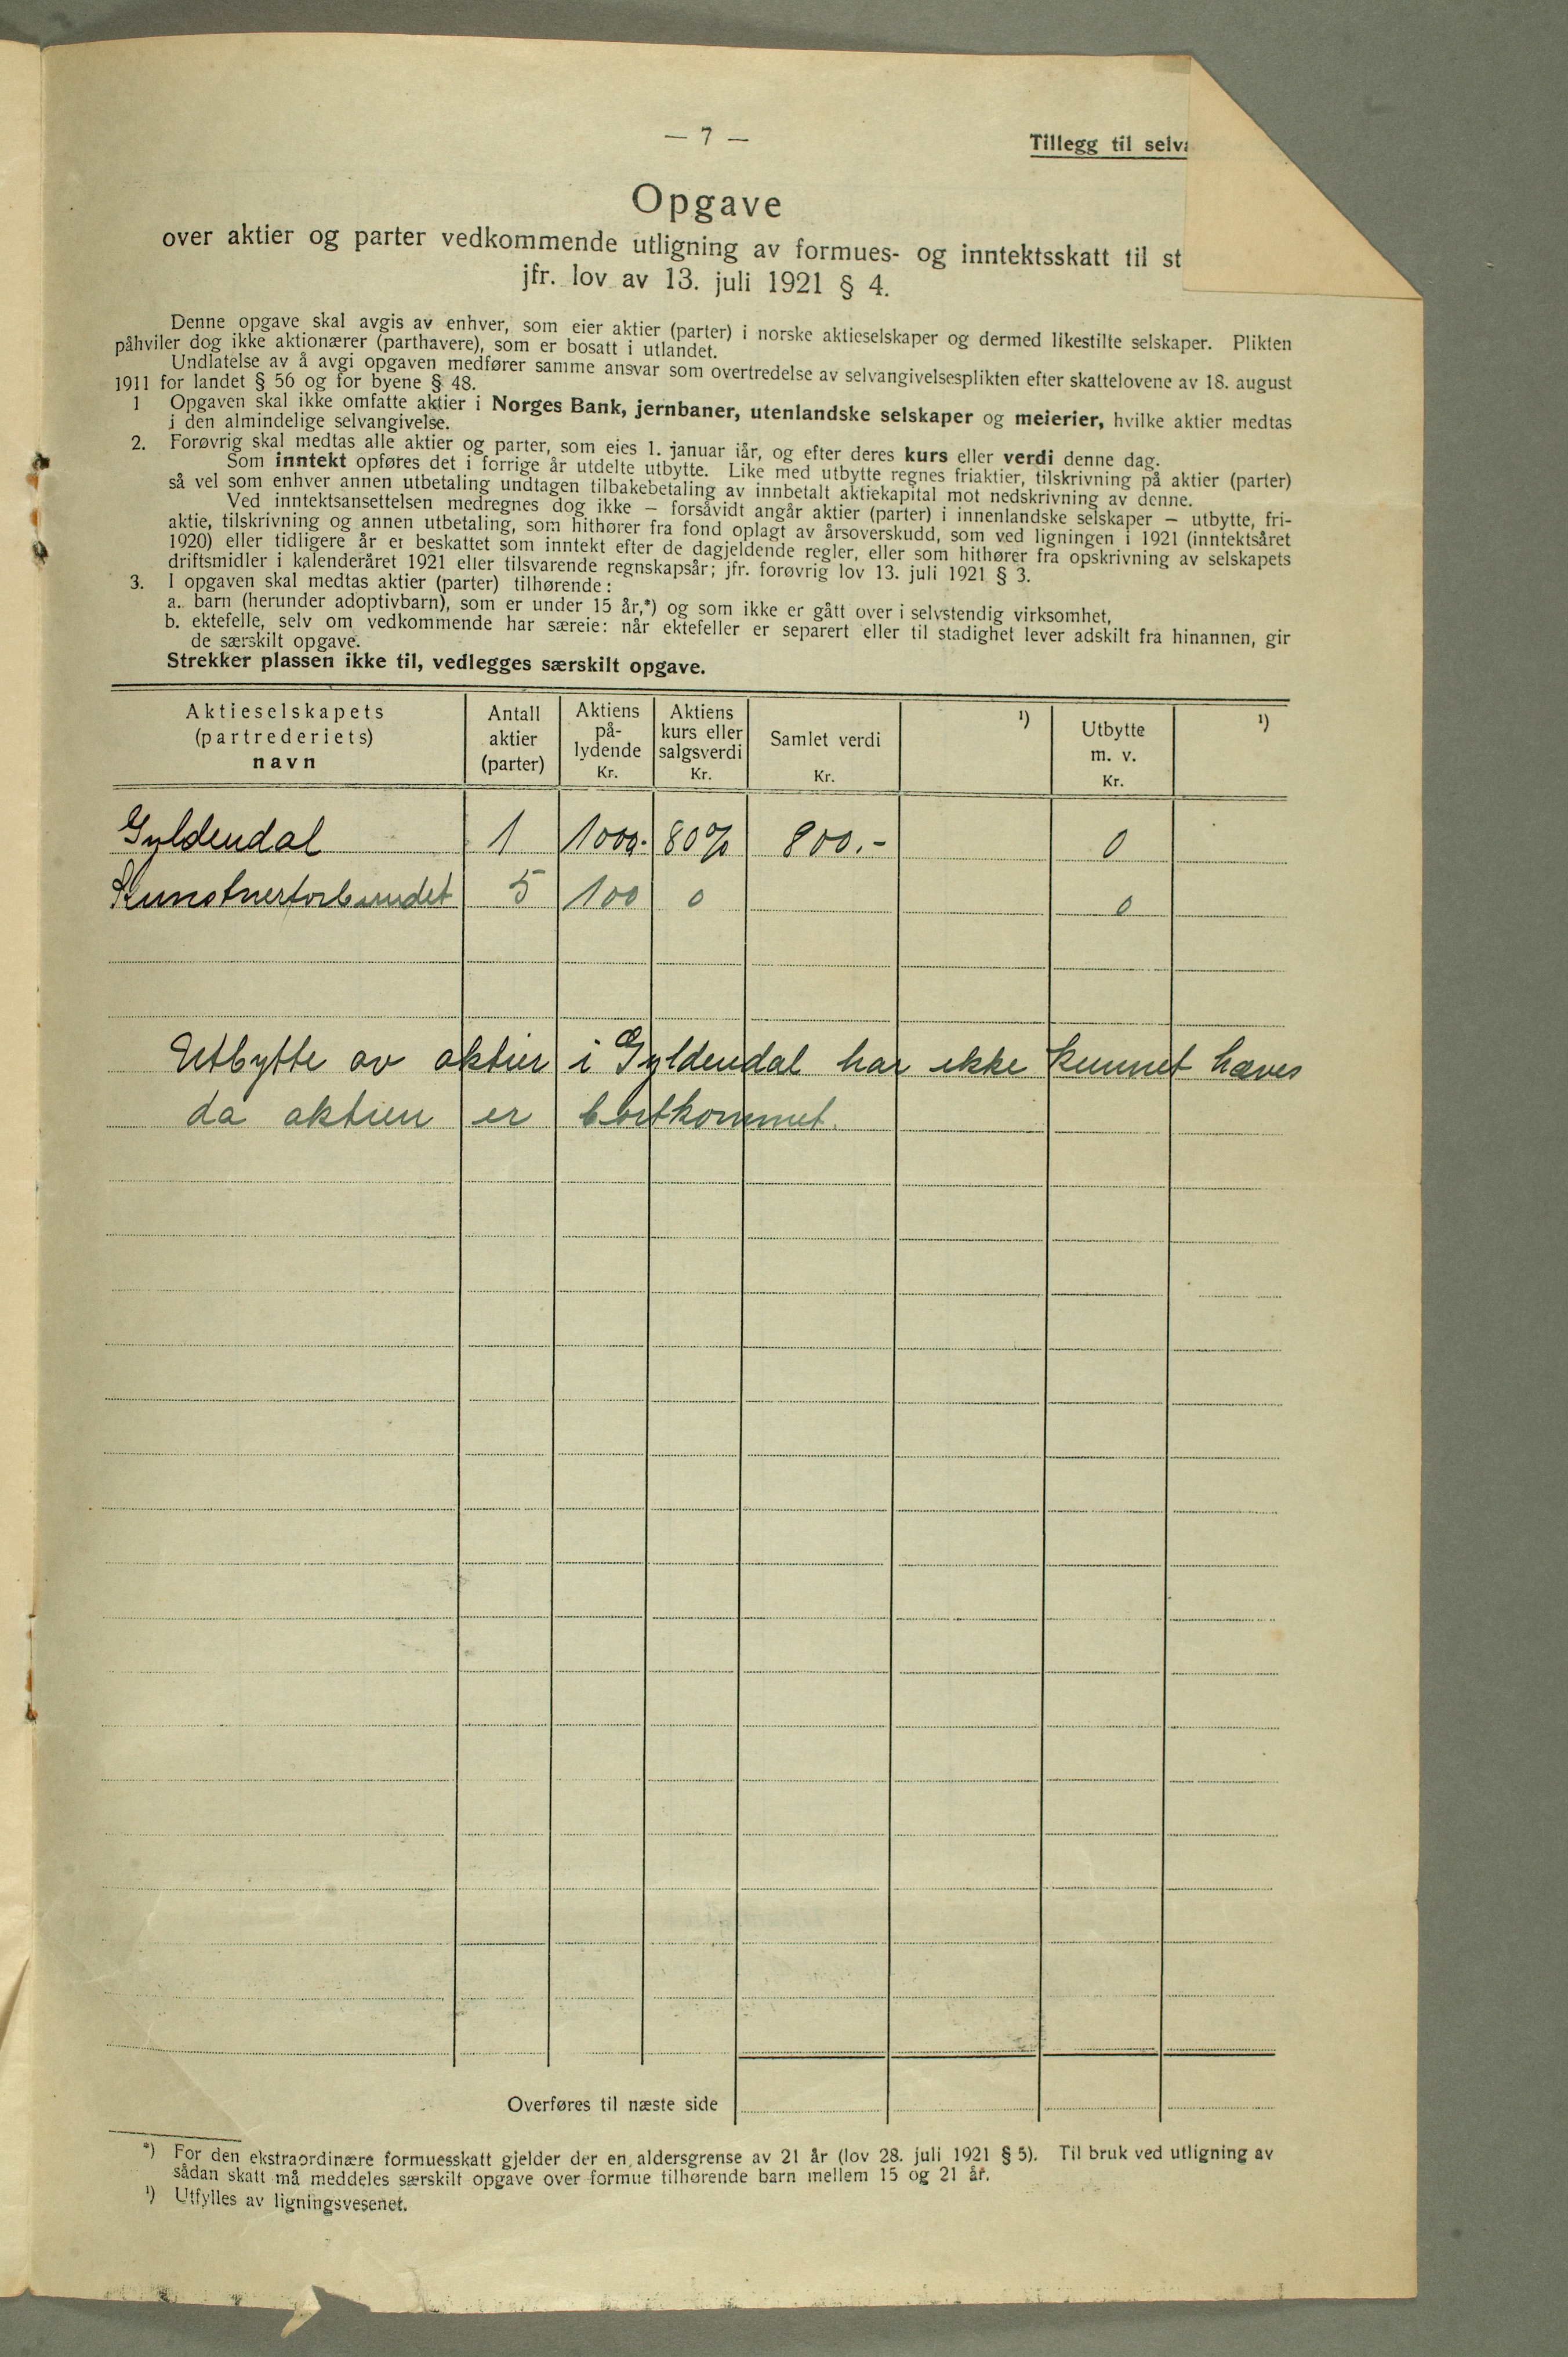 — 7 —
Tillegg til
Opgave
over aktier og parter vedkommende utligning av formues- og inntektsskatt til
jfr. lov av 13. juli 1921 § 4.
Denne opgave skal avgis av enhver, som eier aktier (parter) i norske aktieselskaper og dermed likestilte selskaper. Plikten
påhviler dog ikke aktionærer (parthavere), som er bosatt i utlandet.
Undlatelse av å avgi opgaven medfører samme ansvar som overtredelse av selvangivelsesplikten efter skattelovene av 18. august
1911 for landet § 56 og for byene § 48.
1 Opgaven skal ikke omfatte aktier i Norges Bank, jernbaner, utenlandske selskaper og meierier, hvilke aktier medtas
i den almindelige selvangivelse.
2. Forøvrig skal medtas alle aktier og parter, som eies 1. januar iår, og efter deres kurs eller verdi denne dag.
Som inntekt opføres det i forrige år utdelte utbytte. Like med utbytte regnes friaktier, tilskrivning på aktier (parter)
så vel som enhver annen utbetaling undtagen tilbakebetaling av innbetalt aktiekapital mot nedskrivning av denne.
Ved inntektsansettelsen medregnes dog ikke — forsåvidt angår aktier (parter) i innenlandske selskaper — utbytte, fri-
aktie, tilskrivning og annen utbetaling, som hithører fra fond oplagt av årsoverskudd, som ved ligningen i 1921 (inntektsåret
1920) eller tidligere år er beskattet som inntekt efter de dagjeldende regler, eller som hithører fra opskrivning av selskapets
driftsmidler i kalenderåret 1921 eller tilsvarende regnskapsår; jfr. forøvrig lov 13. juli 1921 § 3.
3. I opgaven skal medtas aktier (parter) tilhørende:
a. barn (herunder adoptivbarn), som er under 15 år,*) og som ikke er gått over i selvstendig virksomhet,
b. ektefelle, selv om vedkommende har særeie: når ektefeller er separert eller til stadighet lever adskilt fra hinannen, gir
de særskilt opgave.
Strekker plassen ikke til, vedlegges særskilt opgave.
Aktieselskapets (partrederiets) navn
Antall aktier (parter)
Aktiens på-lydende Kr.
Aktiens kurs eller salgsverdi Kr.
Samlet verdi Kr.
¹)
Utbytte m. v. Kr.
¹)
Gyldendal 1 1000.- 80% 800.- 0
Kunstnerforbundet 5 100 0 0
Utbytte av aktier i Gyldendal har ikke kunnet hæves
da aktien er bortkommet.
Overføres til næste side
*) For den ekstraordinære formuesskatt gjelder der en aldersgrense av 21 år (lov 28. juli 1921 § 5). Til bruk ved utligning av
sådan skatt må meddeles særskilt opgave over formue tilhørende barn mellem 15 og 21 år.
¹) Utfylles av ligningsvesenet.